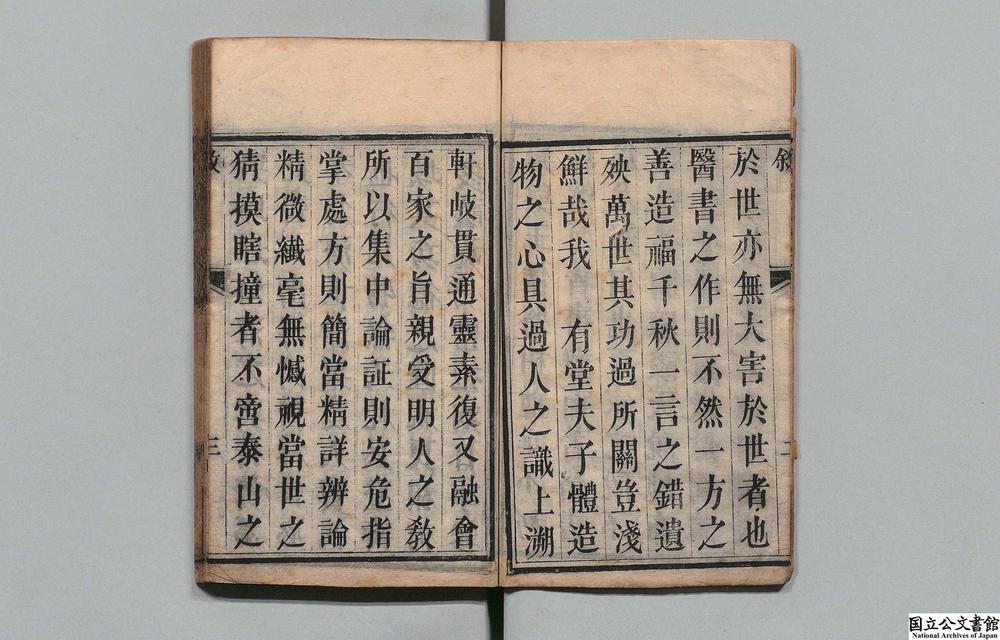 於世亦無大害於世者也
醫書之作則不然一方之
善造福千秋一言之錯遺
殃萬世其功過所關豈淺
鮮哉我 有堂夫子體造
物之心具過人之識上溯
軒岐貫通靈素復又融會
百家之旨親受明人之敎
所以集中論証則安危指
掌處方則簡當精詳辨論
精微纖毫無憾視當世之
猜摸瞎撞者不啻泰山之
三
国立公文書館
National Archives of Japan